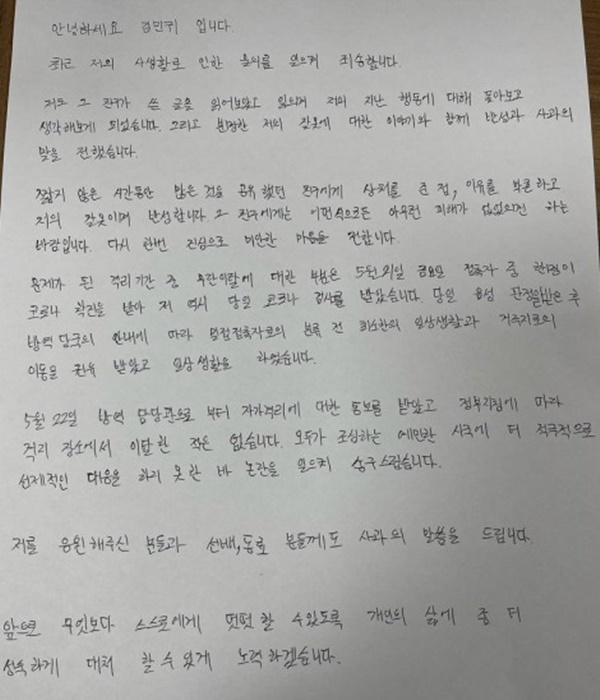 안녕하세요 김민귀 입니다.
최근 저의 사생활로 인한 논의를 일으켜 죄송합니다.
저도 그 친구가 쓴 글을 읽어보았고 읽으며 저의 지난 행동에 대해 돌아보고
생각해보게 되었습니다. 그리고 분명한 저의 잘못에 대한 이야기와 함께 반성과 사과의
말을 전했습니다.
짧지 않은 시간동안 많은 것을 공유했던 친구에게 상처를 준 점, 이유를 불문하고
저의 잘못이며 반성합니다 그 친구에게는 어떤식으로든 아무런 피해가 없었으면 하는
바람입니다. 다시 한번 진심으로 미안한 마음을 전합니다.
문제가 된 격리기간 중 무단이탈에 대한 부분은 5월 21일 금요일 접촉자 중 한명이
코로나 확진을 받아 저 역시 당일 코로나 검사를 받았습니다. 당일 음성 판정받은 후
방역 당국의 안내에 따라 밀접접촉자로의 분류 전 최소한의 일상생활과 거주지로의
이동을 권유 받았고 일상 생활을 하였습니다.
5월 22일 방역 담당관으로 부터 자가격리에 대한 통보를 받았고 정부지침에 따라
격리 장소에서 이탈한 적은 없습니다. 모두가 조심하는 예민한 시국에 더 적극적으로
선제적인 대응을 하지 못한 바 논란을 일으켜 송구스럽습니다.
저를 응원해주신 분들과 선배, 동료 분들께도 사과의 말씀을 드립니다.
앞으로 무엇보다 스스로에게 떳떳할 수있도록 개인의 삶에 좀 더
성숙하게 대처 할 수 있게 노력하겠습니다.